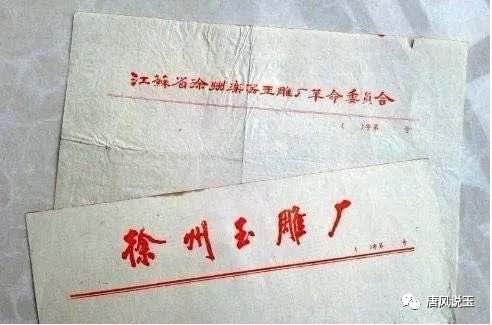 江蘇省徐州玉雕厂革命委員会
( )字第 号
徐州玉雕厂
( )字第 号
唐风说玉